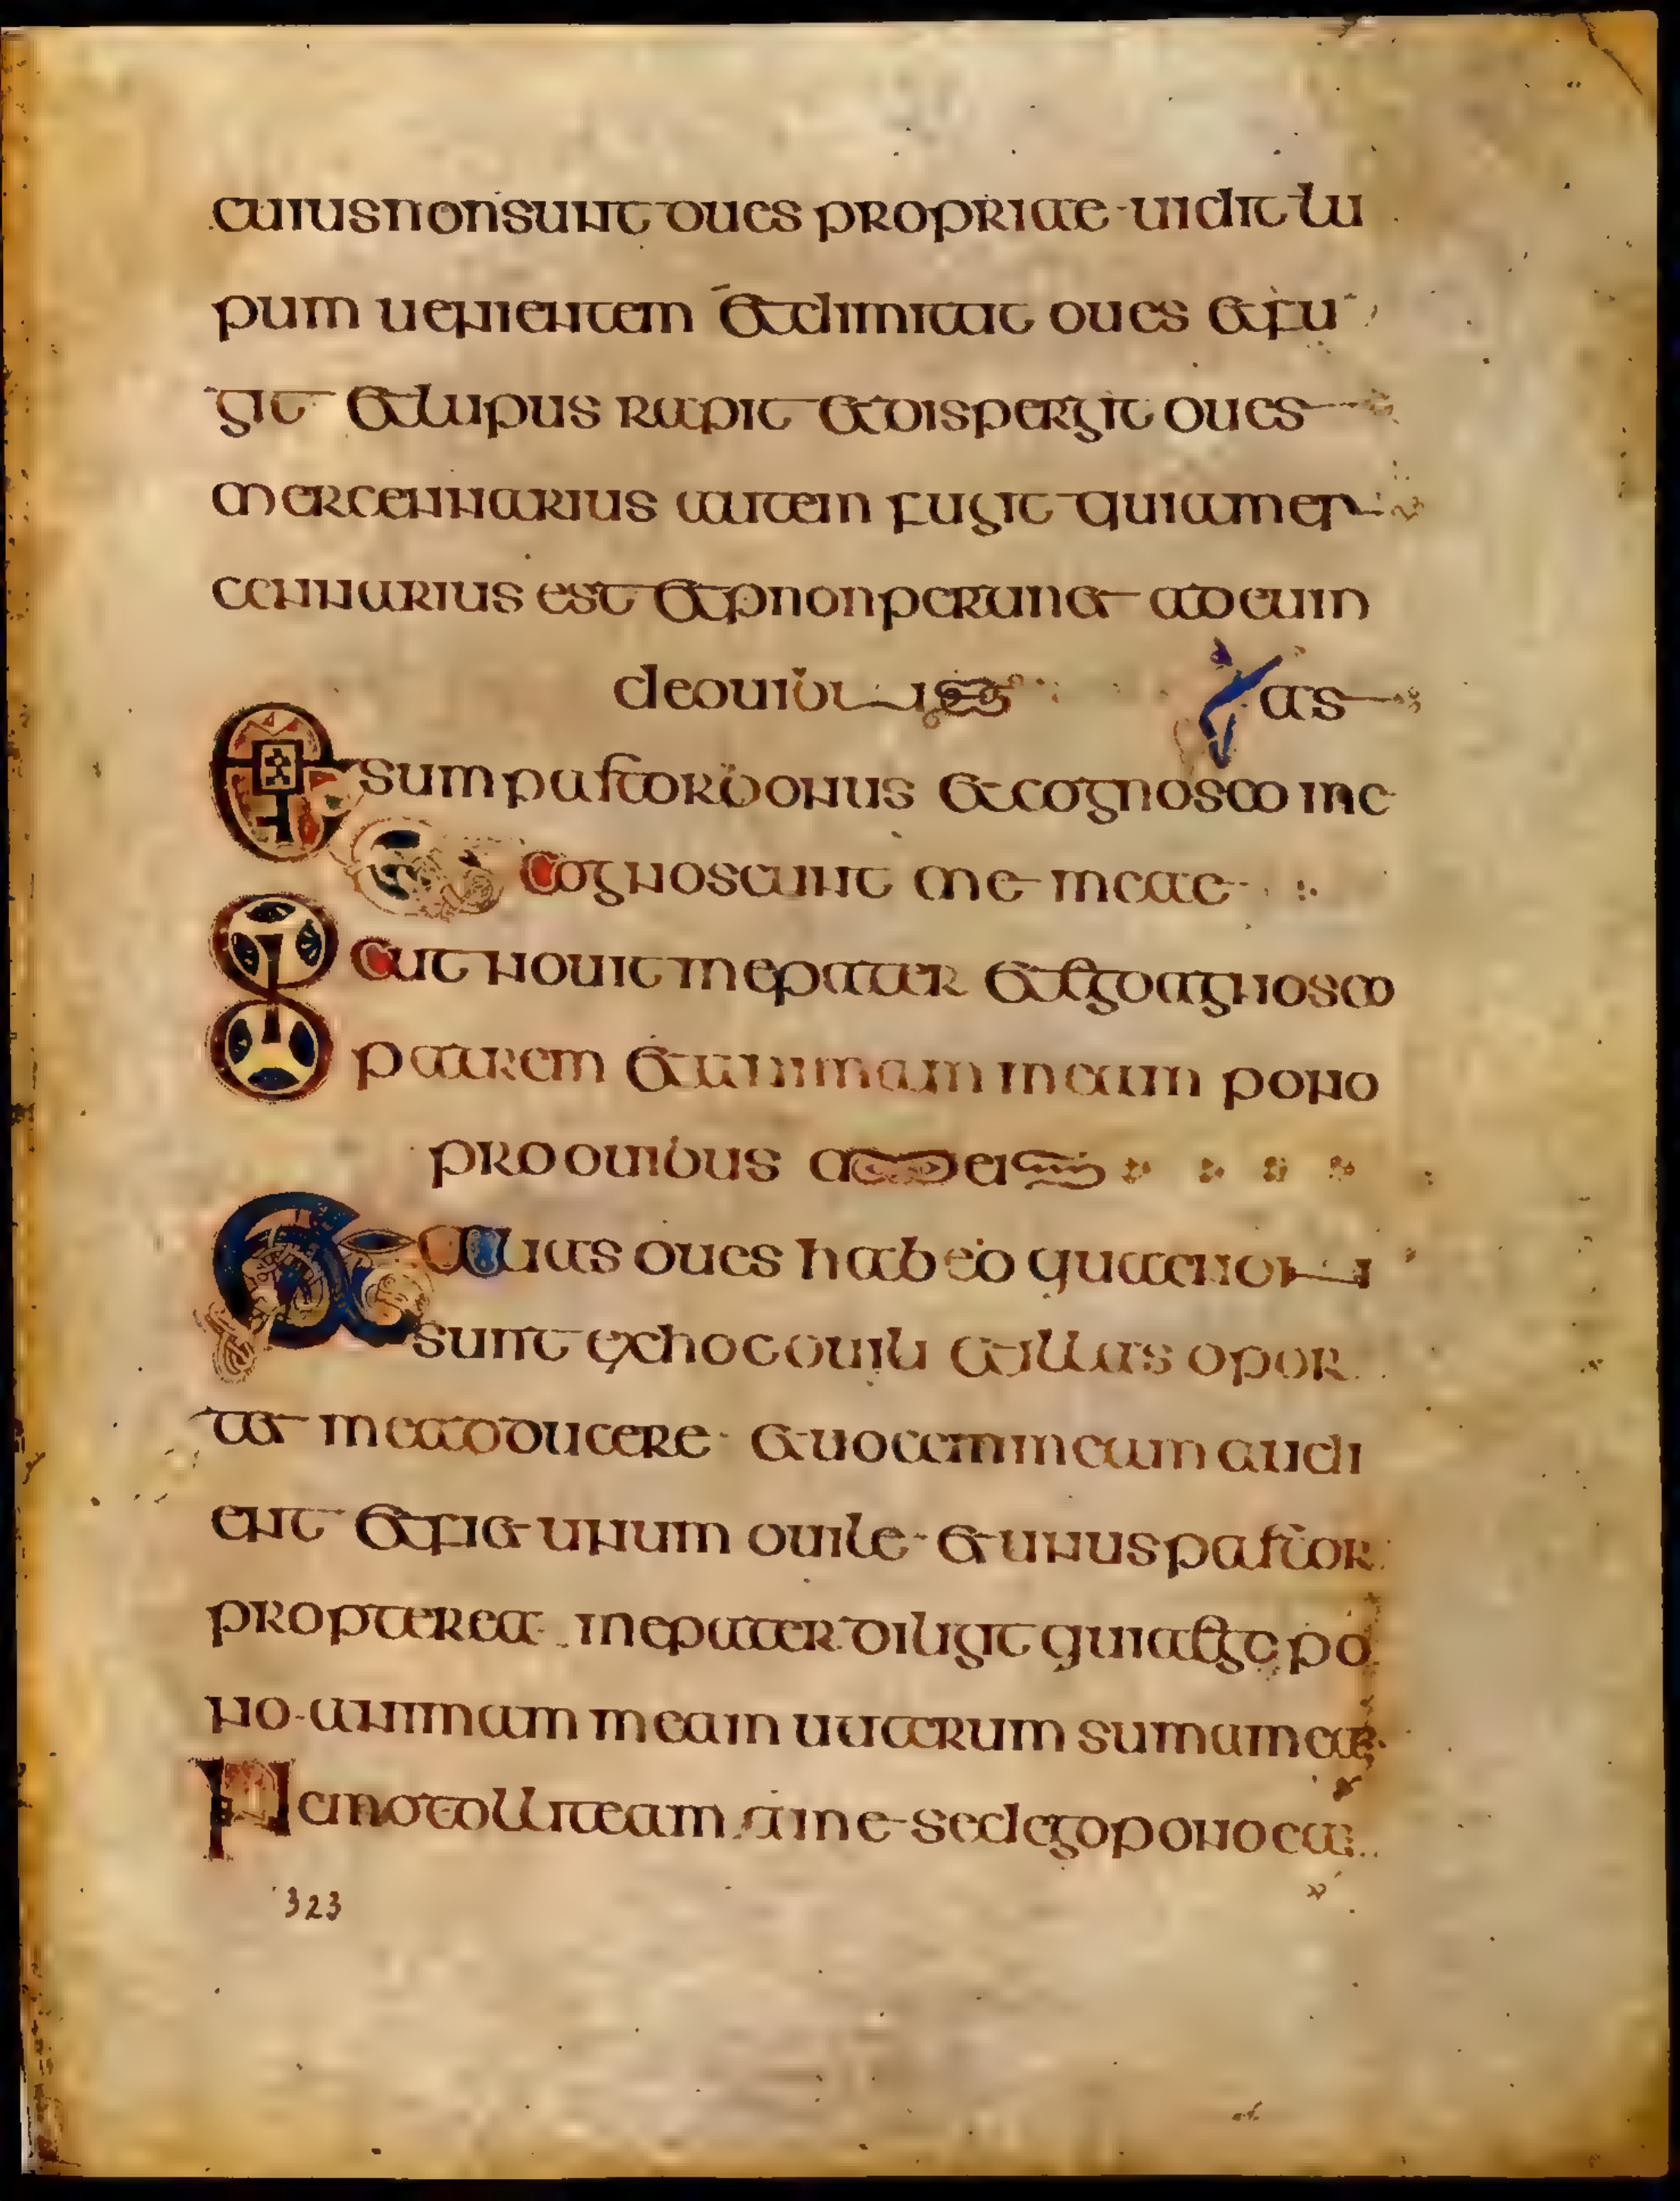 cuius non sunt oues propriae uidit lu
pum uenientem et dimittit oues et fu
git et lupus rapit et dispergit oues
mercennarius autem fugit quia mer
cennarius est et non pertinet ad eum
de ouib us as
sum pastor bonus et cognosco me
Et cognoscunt me meae
Sicut nouit me pater et ego agnosco
patrem et animam meam pono
pro ouibus
Et alias oues habeo quae non
sunt ex hoc ouili et illas opor
tet me adducere et uocem meam audi
ent et fiet unum ouile et unus pastor
propterea me pater diligit quia ego po
no animam meam ut iterum sumam eam
Nemo tollit eam a me sed ego pono eam
323